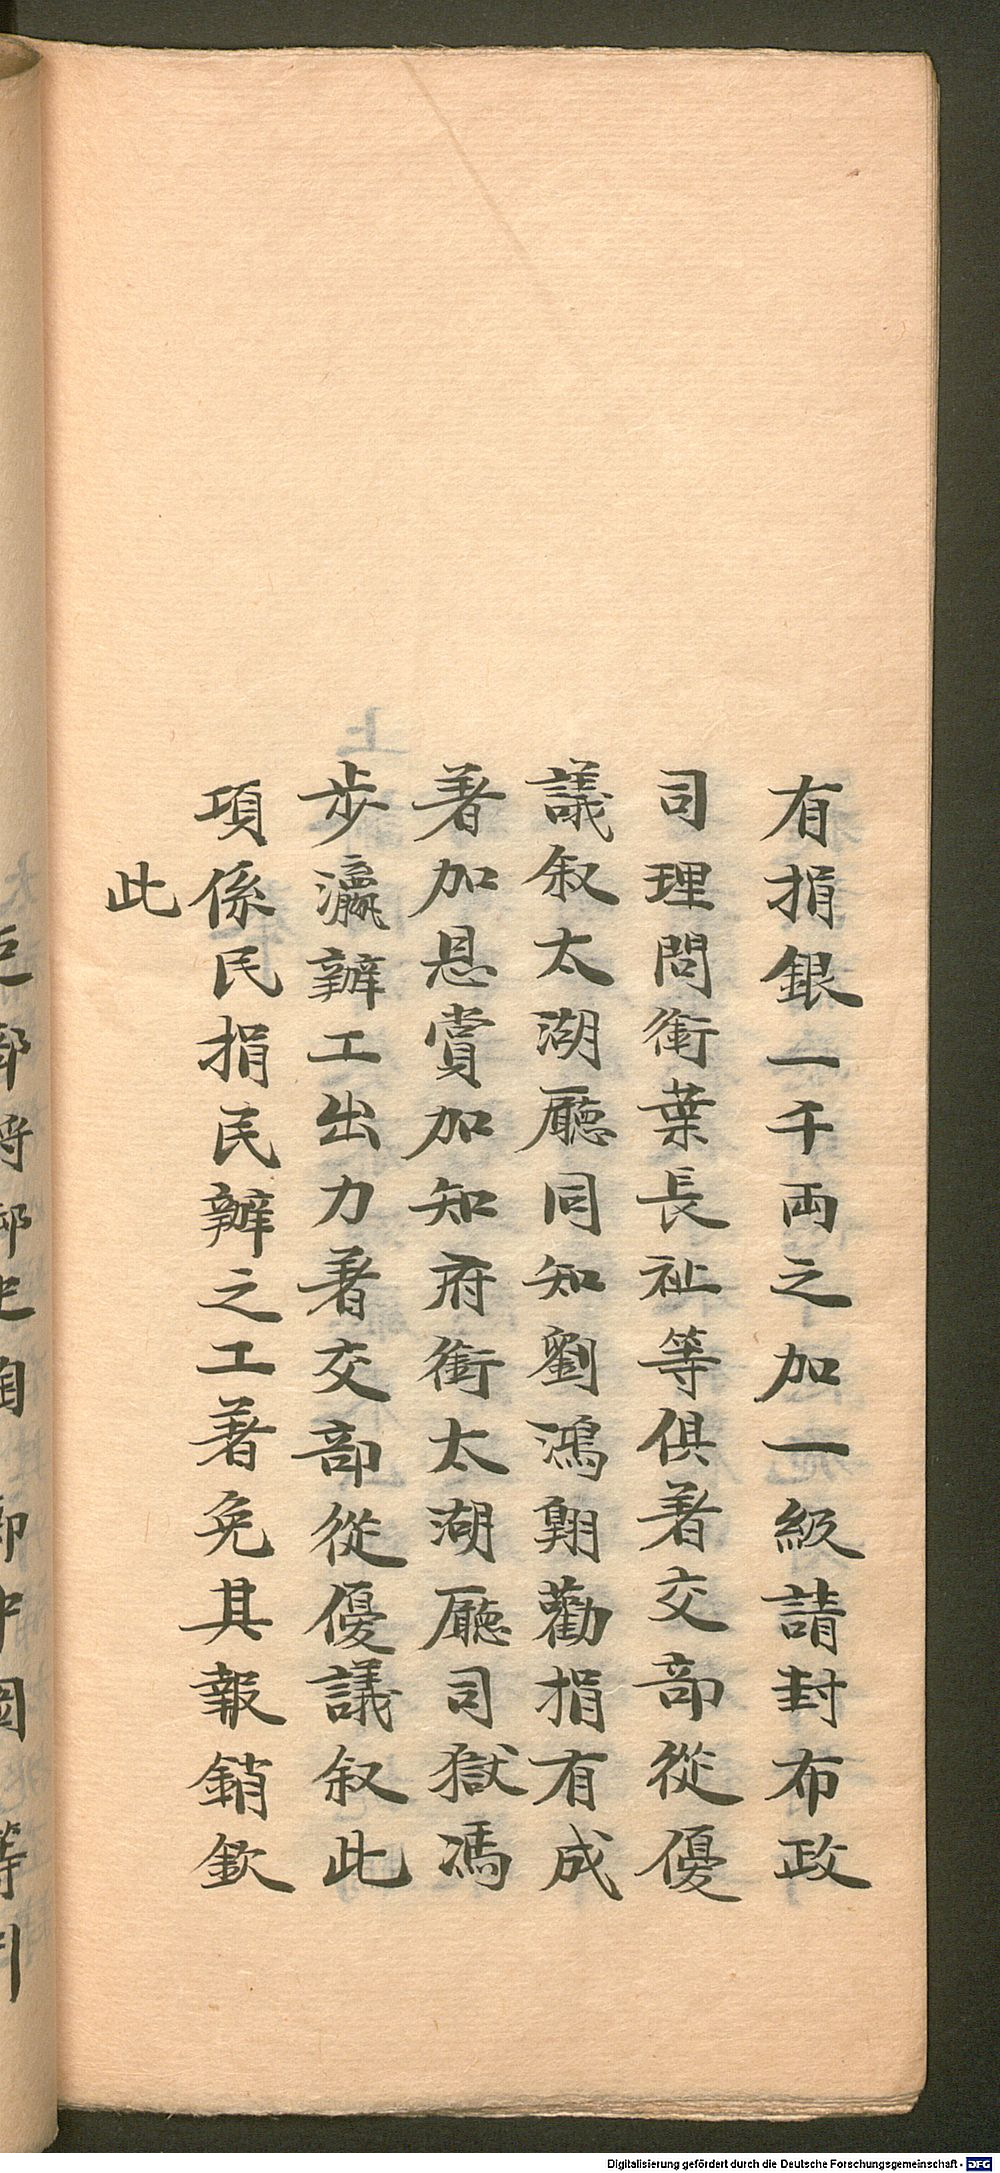 有捐銀一千両之加一級請封布政
司理問銜葉長祉等俱著交部從優
議叙太湖廳同知劉鴻翱勸捐有成
著加恩賞加知府銜太湖廳司獄馮
步瀛辦工出力著交部從優議叙此
項係民捐民辦之工著免其報銷欽
此
Digitalisierung gefördert durch die Deutsche Forschungsgemeinschaft - DFG